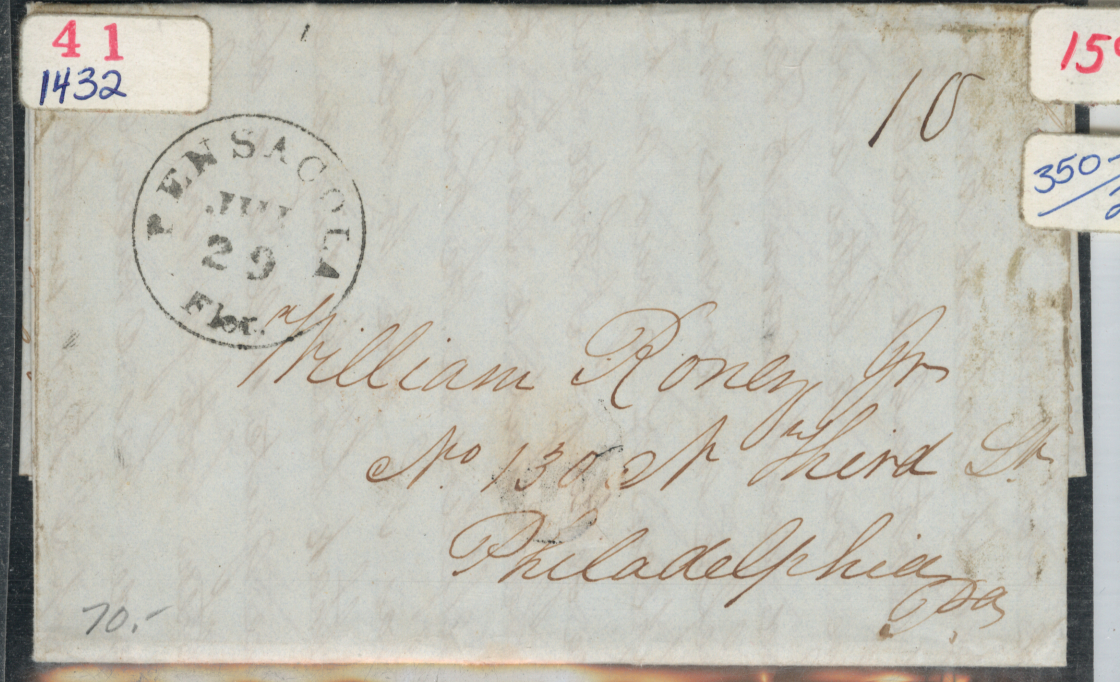 41
1432
10
350-
PENSACOLA
JUL
29
Flor.
William Roney Jr
No. 130 N Third St.
Philadelphia
Pa
70.-